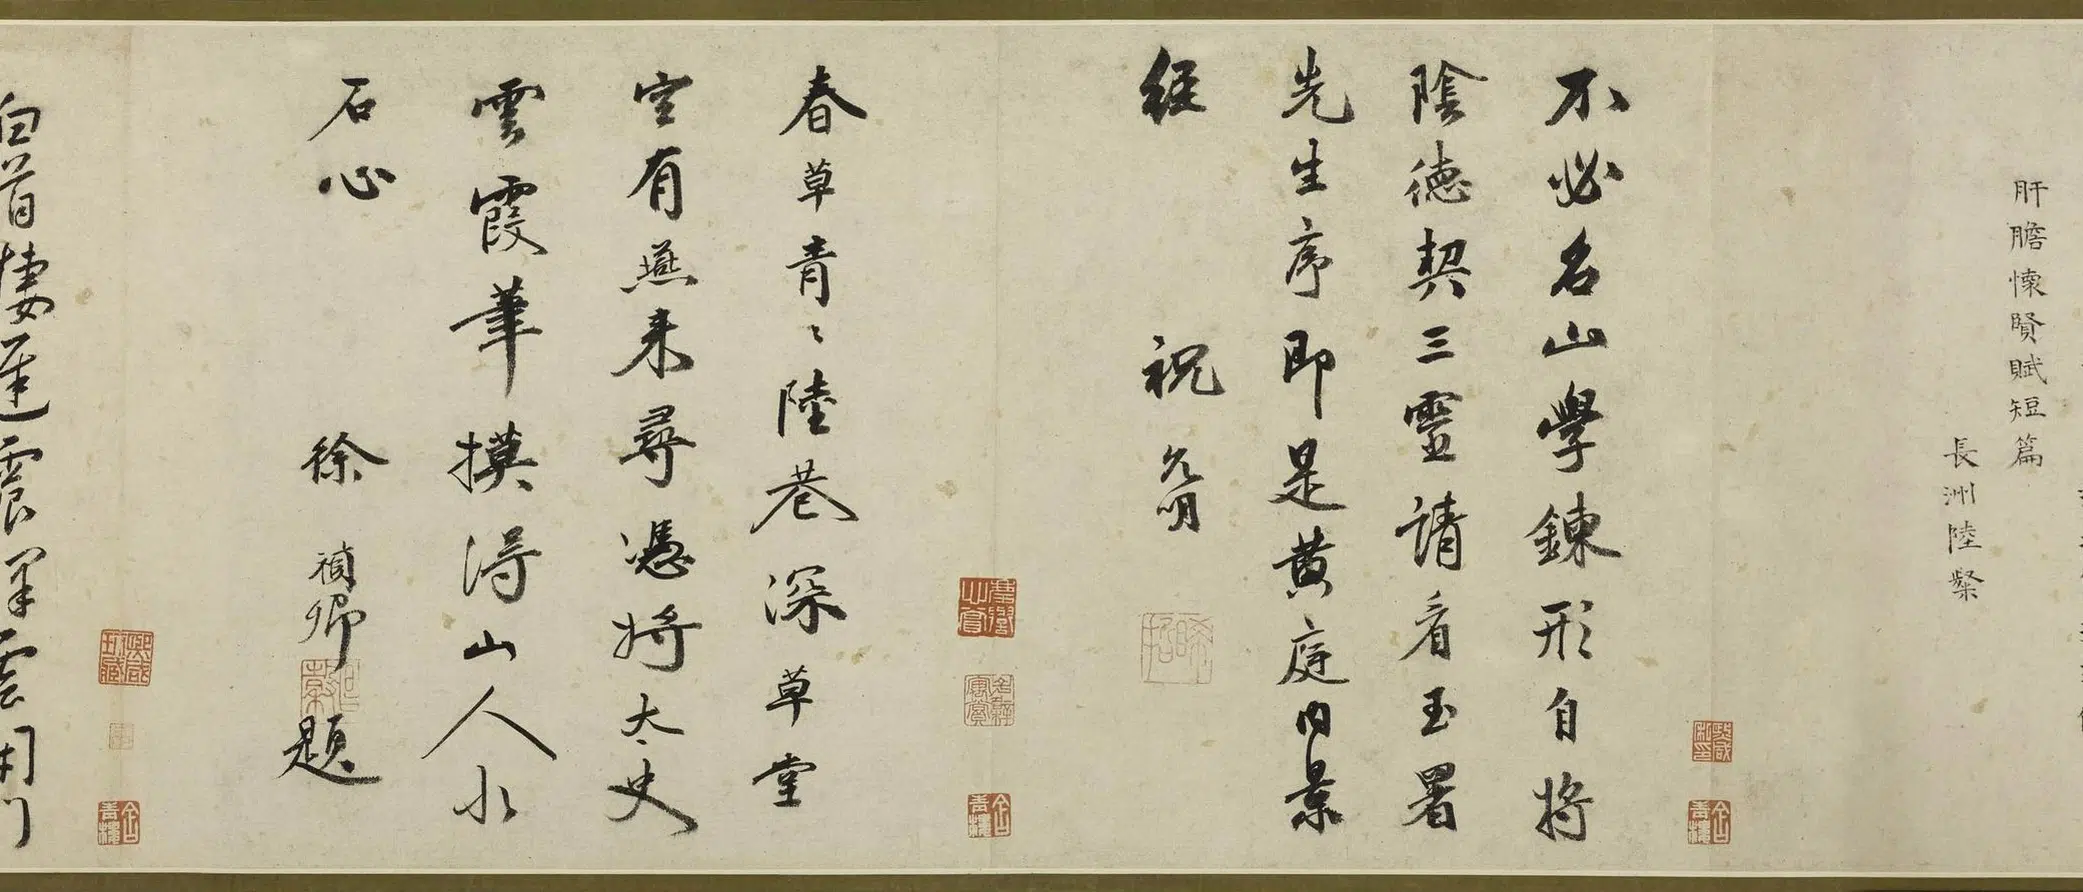 肝膽懷賢賦短篇
長洲陸粲
不必名山學鍊形自將
陰德契三靈請看玉署
先生序即是黃庭內景
經 祝允明
春草青〻陸巷深草堂
空有燕來尋憑將太史
雲霞筆摸得山人水
石心 徐禎卿題
白首棲遲震澤雲閉門